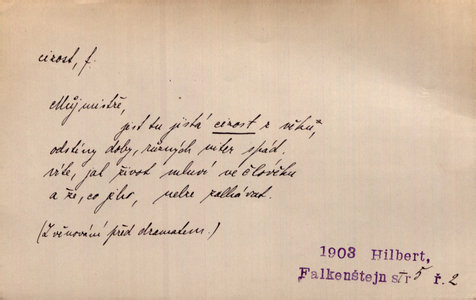 cizost, f.
Můj mistře,
jest tu jistá cizost z věků,
odstíny doby, různých niter spád.
víte, jak život mluví ve člověku
a že, co jiho, nelze zalhávat.
(Z věnování před dramatem.)
1903 Hilbert,
Falkenštejn str 5 ř. 2